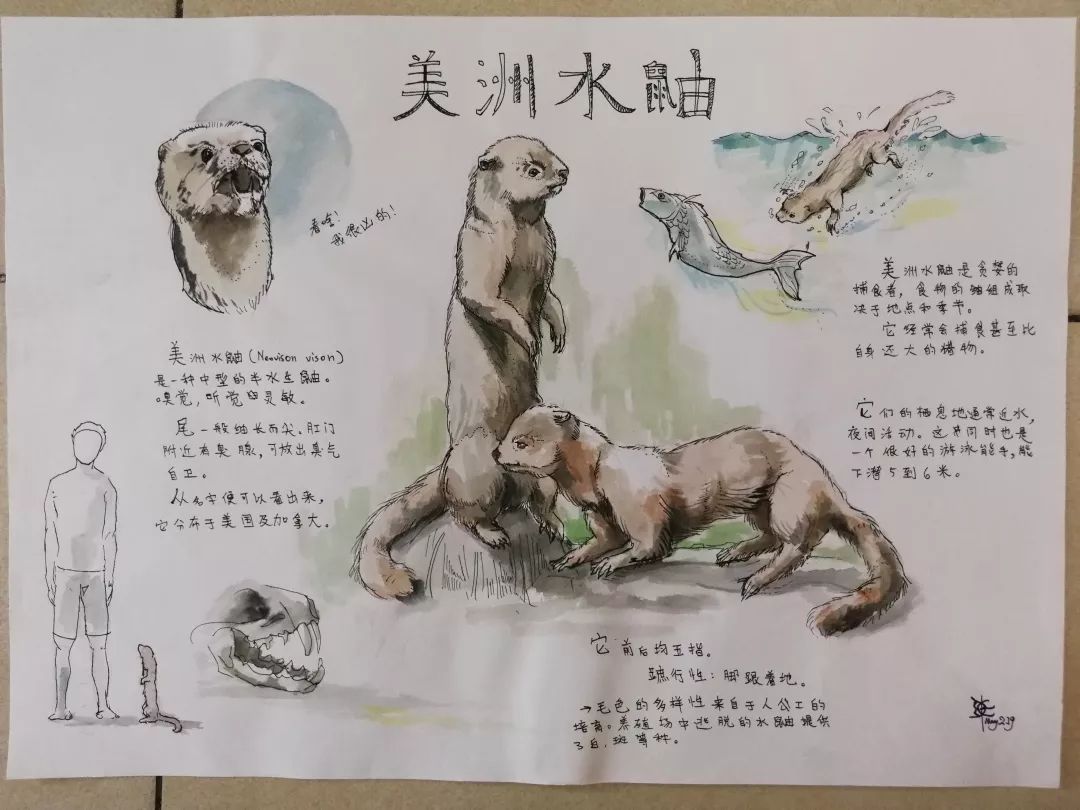 美洲水鼬
看啥!
我很凶的!
美洲水鼬(Neovison vison)
是一种中型的半水生鼬。
嗅觉,听觉灵敏。
尾一般细长而尖、肛门
附近有臭腺,可放出臭气
自卫。
从名字便可以看出来,
它分布于美国及加拿大。
美洲水鼬是贪婪的
捕食者,食物的组成取
决于地点和季节。
它经常会捕食甚至比
自身还大的猎物。
它们的栖息地通常近水,
夜间活动。这同时也是
一个很好的游泳能手,能
下潜5到6米。
它前后均五指。
蹠行性:脚跟着地。
→毛色的多样性来自于人公工的
培育。养殖场中逃脱的水鼬提供
了白,斑等种。